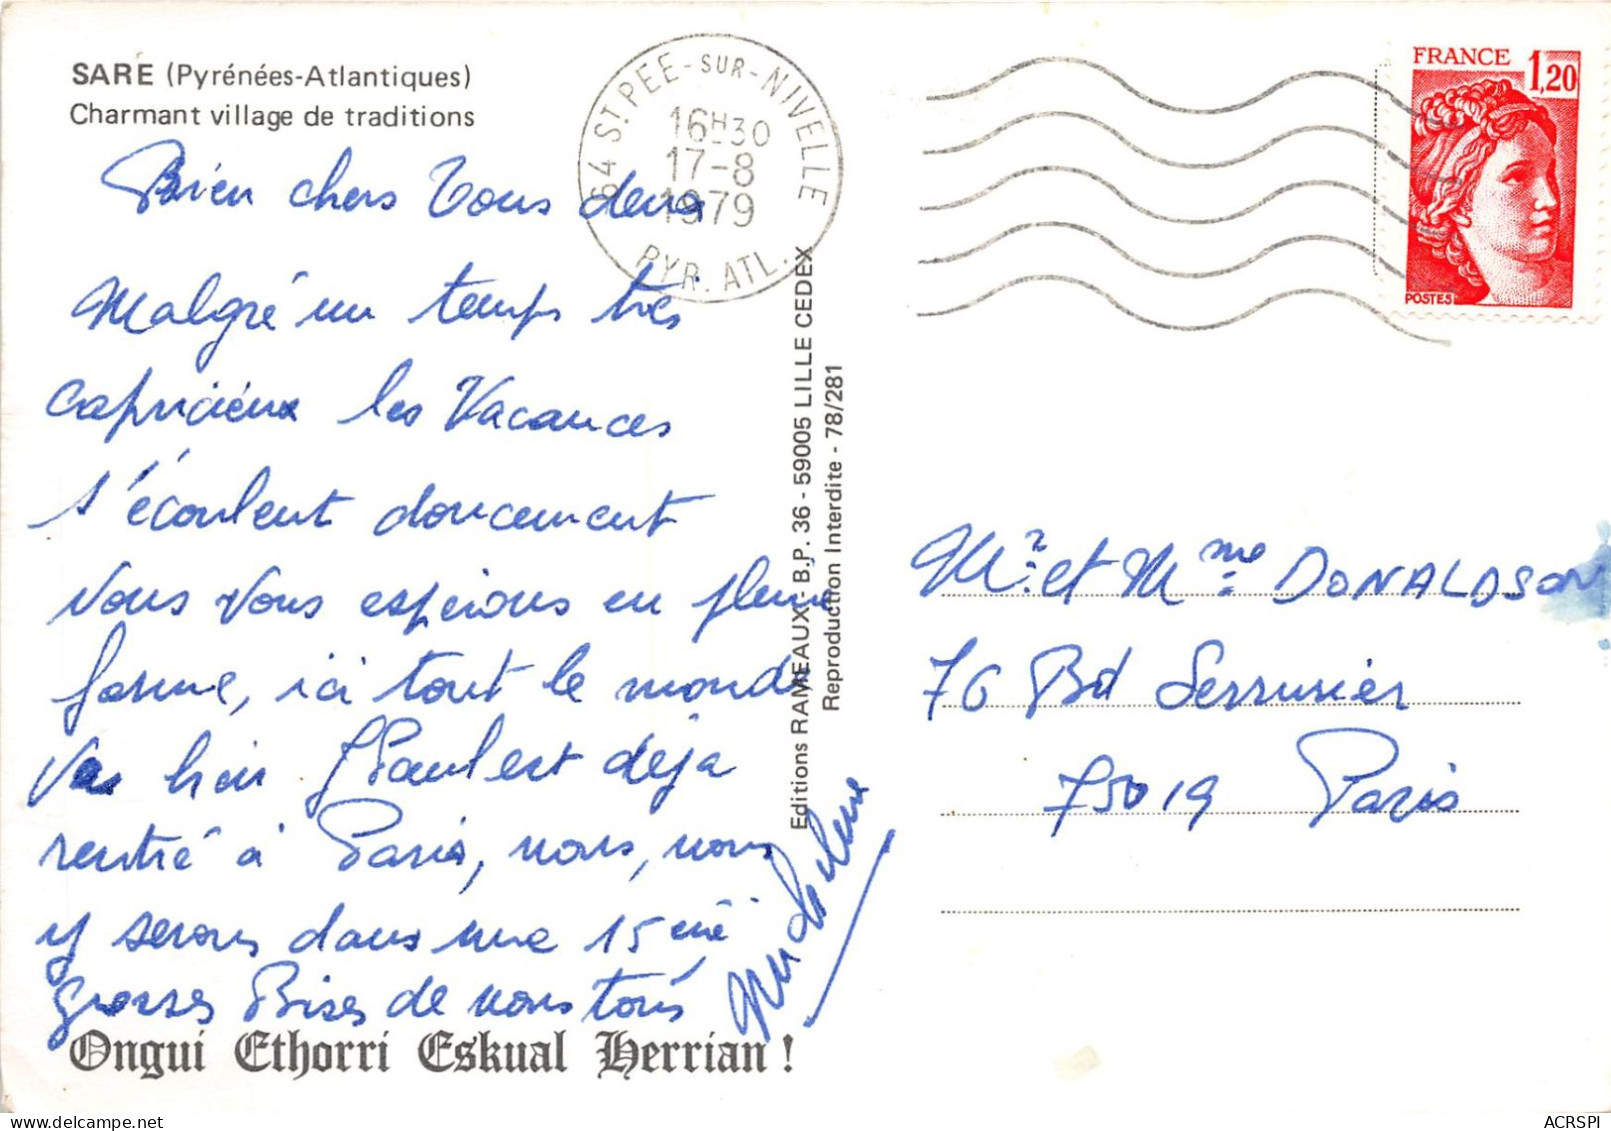 SARE (Pyrénées-Atlantiques)
Charmant village de traditions
64 ST. PEE-SUR-NIVELLE
16H30
17-8
1979
PYR. ATL.
FRANCE 1,20
POSTES
Bien chers Vous deux
Malgré un temps très
capricieux les Vacances
s'écoulent doucement
nous vous espérons en pleine
forme, ici tout le monde
va bien J Paul est déja
rentré à Paris, nous, nous
y serons dans une 15éne
grosses Bises de nous tous
Micheline
Ongui Ethorri Eskual Herrian !
Editions RAMEAUX - B.P. 36 - 59005 LILLE CEDEX
Reproduction Interdite - 78/281
Mr. et Mme DONALDSON
76 Bd Serrurier
75019 Paris
ACRSPI